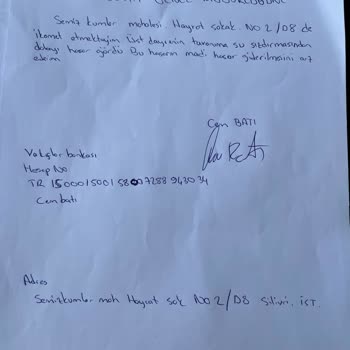 Semiz kumlar mahalesi. Hayrat sokak. NO 2 / D8 de
ikamet etmekteyim Üst dayrenin tuvanıma su sızdırmasından
dolayı hasar gördü Bu hasarın madi hasar giderilmesini arz
ederim
Cem BATI
Vakıflar bankası
Hesap No:
TR 150001500158007288943034
Cem batı
Adres
Semizkumlar mah Hayrat sok NO 2/D8 Silivri. iST.